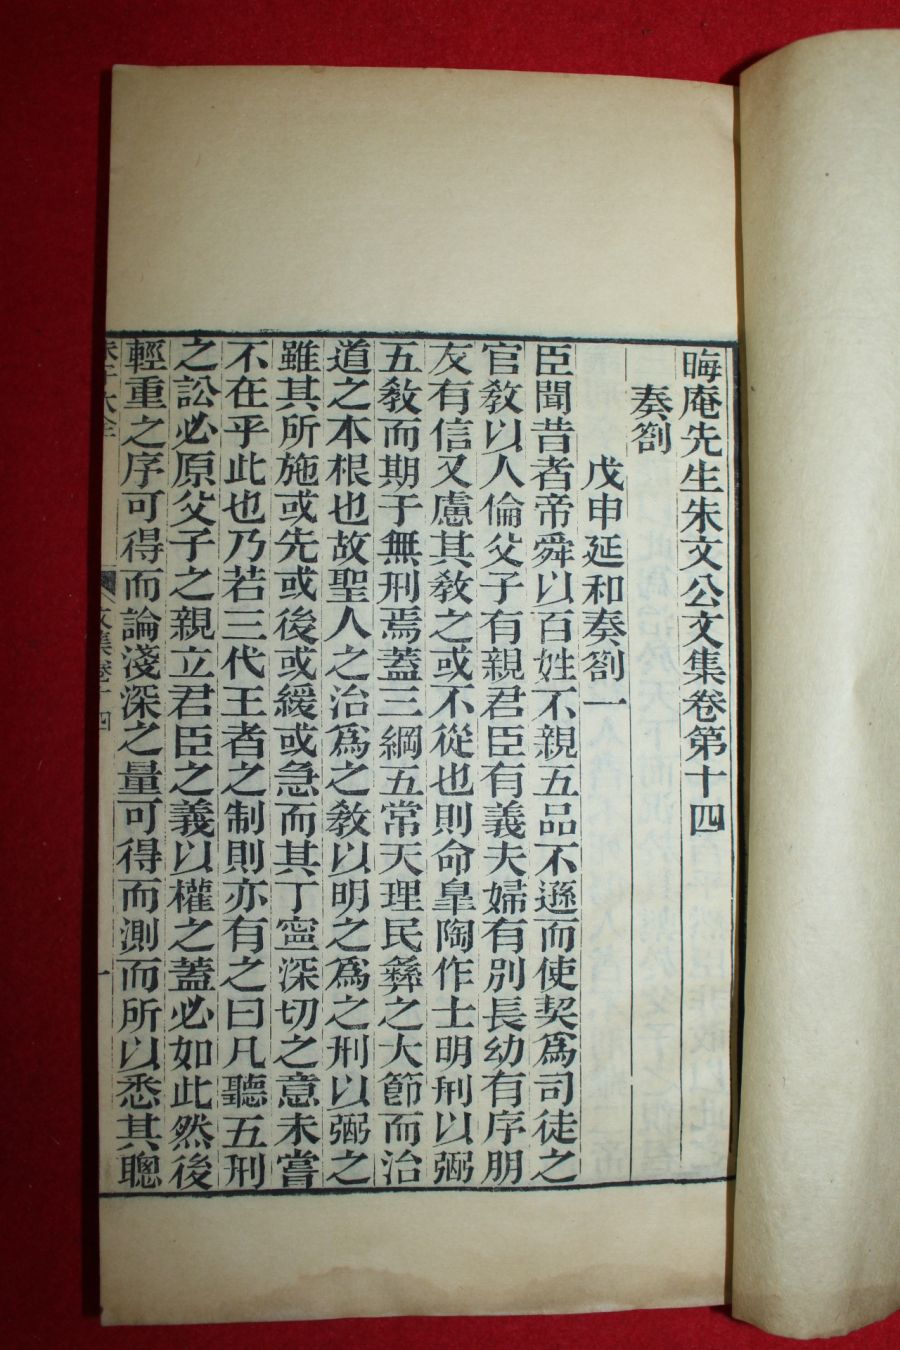 晦庵先生朱文公文集卷第十四
奏劄
戊申延和奏劄一
臣聞昔者帝舜以百姓不親五品不遜而使契爲司徒之
官敎以人倫父子有親君臣有義夫婦有別長幼有序朋
友有信又慮其敎之或不從也則命皐陶作士明刑以弼
五敎而期于無刑焉蓋三綱五常天理民彝之大節而治
道之本根也故聖人之治爲之敎以明之爲之刑以弼之
雖其所施或先或後或緩或急而其丁寧深切之意未嘗
不在乎此也乃若三代王者之制則亦有之曰凡聽五刑
之訟必原父子之親立君臣之義以權之蓋必如此然後
輕重之序可得而論淺深之量可得而測而所以悉其聰
朱子大全 文集卷十四 一